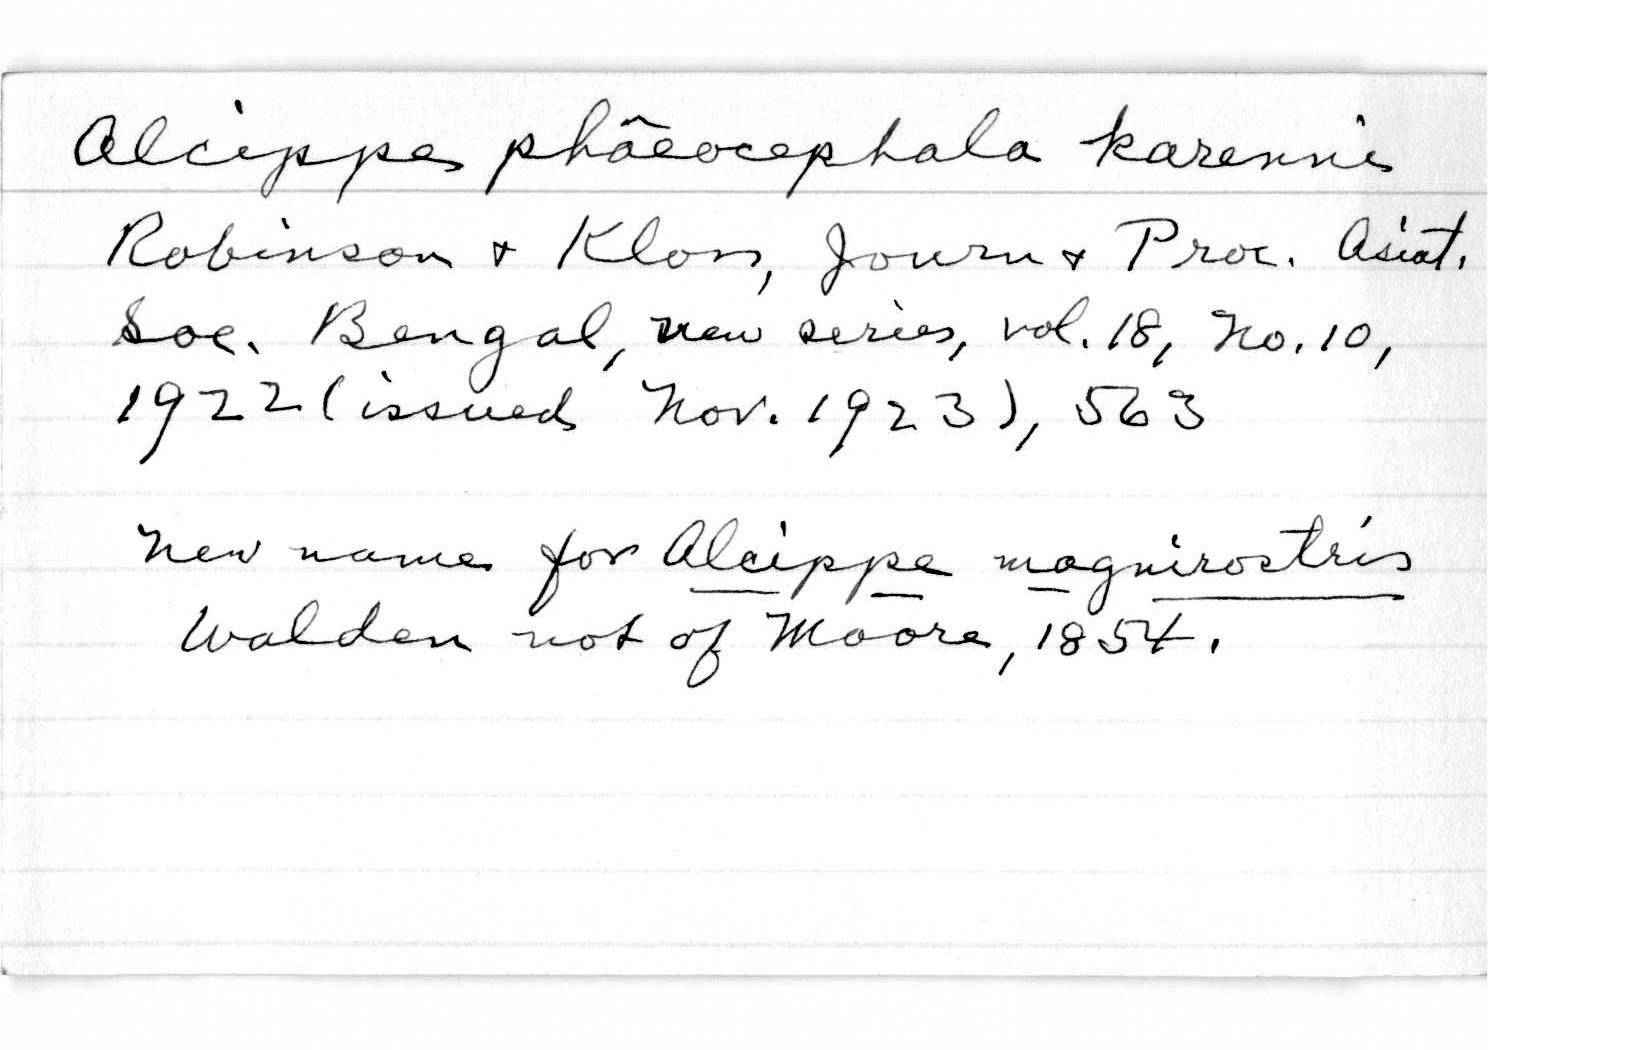 Alcippe phaeocephala karenni
Robinson & Kloss, Journ & Proc. Asiat.
Soc. Bengal, new series, vol. 18, No. 10,
1922 (issued Nov. 1923), 563
New name for Alcippe magnirostris
Walden not of Moore, 1854.